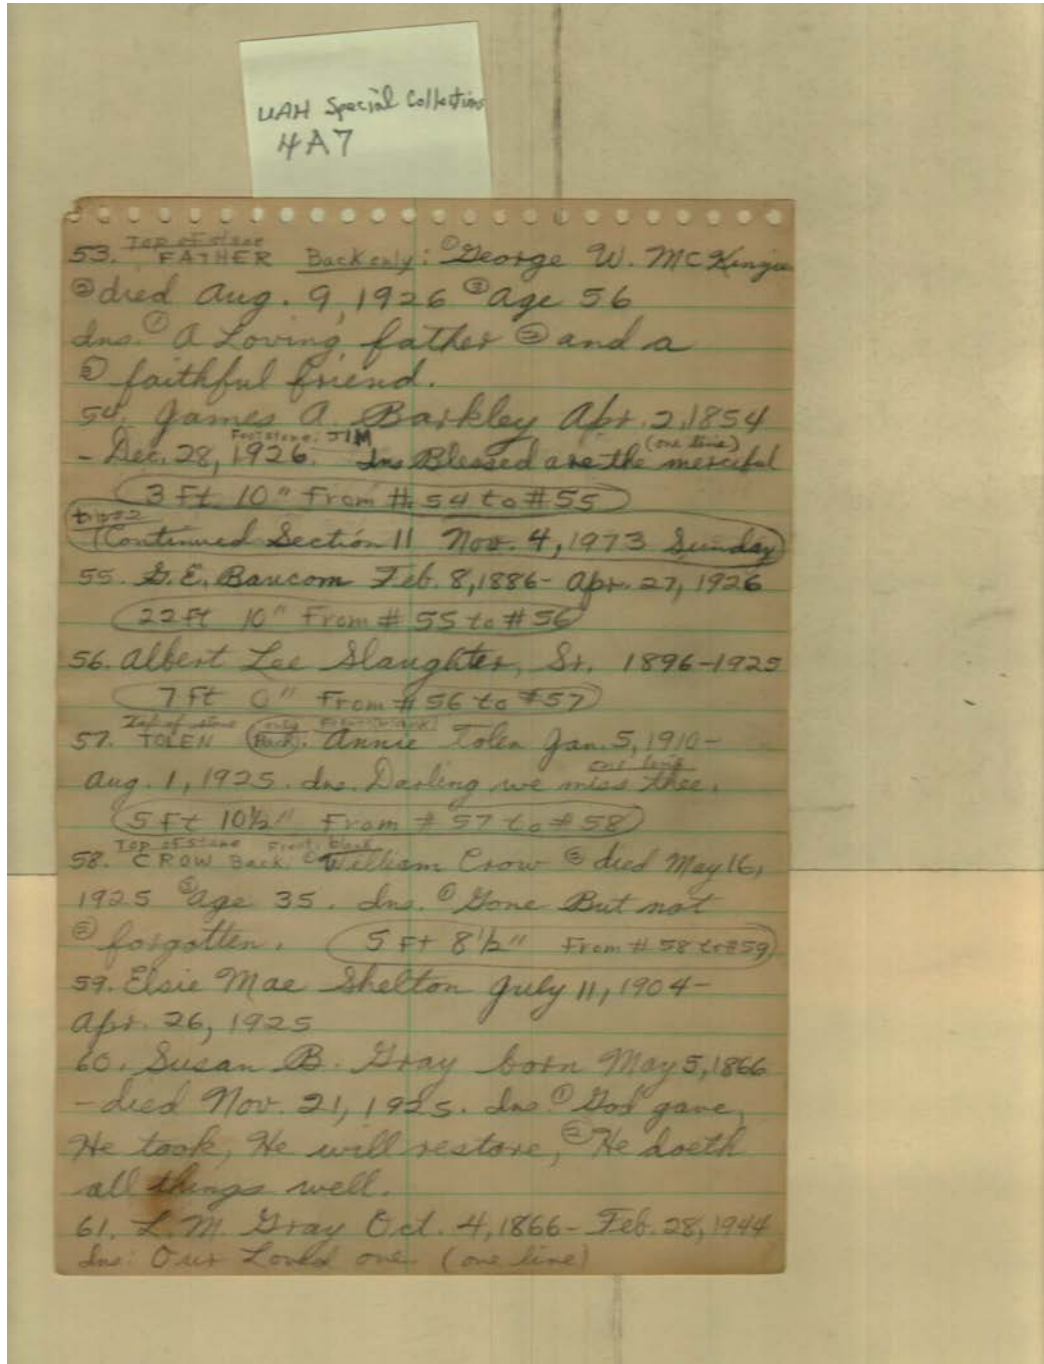 UAH Special Collections
4A7
Top of stone
53. FATHER Back only: ① George W. McKinzie
② died Aug. 9, 1926 ③ Age 56
Ins. ① A Loving father ② and a
③ faithful friend.
54. James A. Barkley Apr. 2, 1854
Footstone: JIM (one line)
- Dec. 28, 1926. Ins Blessed are the merciful
3 Ft. 10" From # 54 to # 55
(Continued Section 11 Nov. 4, 1973 Sunday)
55. G. E. Baucom Feb. 8, 1886 - Apr. 27, 1926
22 Ft 10" From # 55 to # 56
56. Albert Lee Slaughter, Sr. 1896-1925
7 Ft 0" From # 56 to # 57
Top of stone only Front (blank)
57. TOLEN Back: Annie Tolen Jan. 5, 1910 -
one line
Aug. 1, 1925. Ins. Darling we miss thee.
5 Ft 10½" From # 57 to # 58
Top of stone Front: blank
58. CROW Back: ① William Crow ② died May 16,
1925 ③ age 35. Ins. ① Gone But not
② forgotten. 5 Ft 8½" From # 58 to # 59
59. Elsie Mae Shelton July 11, 1904 -
Apr. 26, 1925
60. Susan B. Gray born May 5, 1866
- died Nov. 21, 1925. Ins. ① God gave,
He took, He will restore, ② He doeth
all things well.
61. L. M. Gray Oct. 4, 1866 - Feb. 28, 1944
Ins: Our Loved one. (one line)